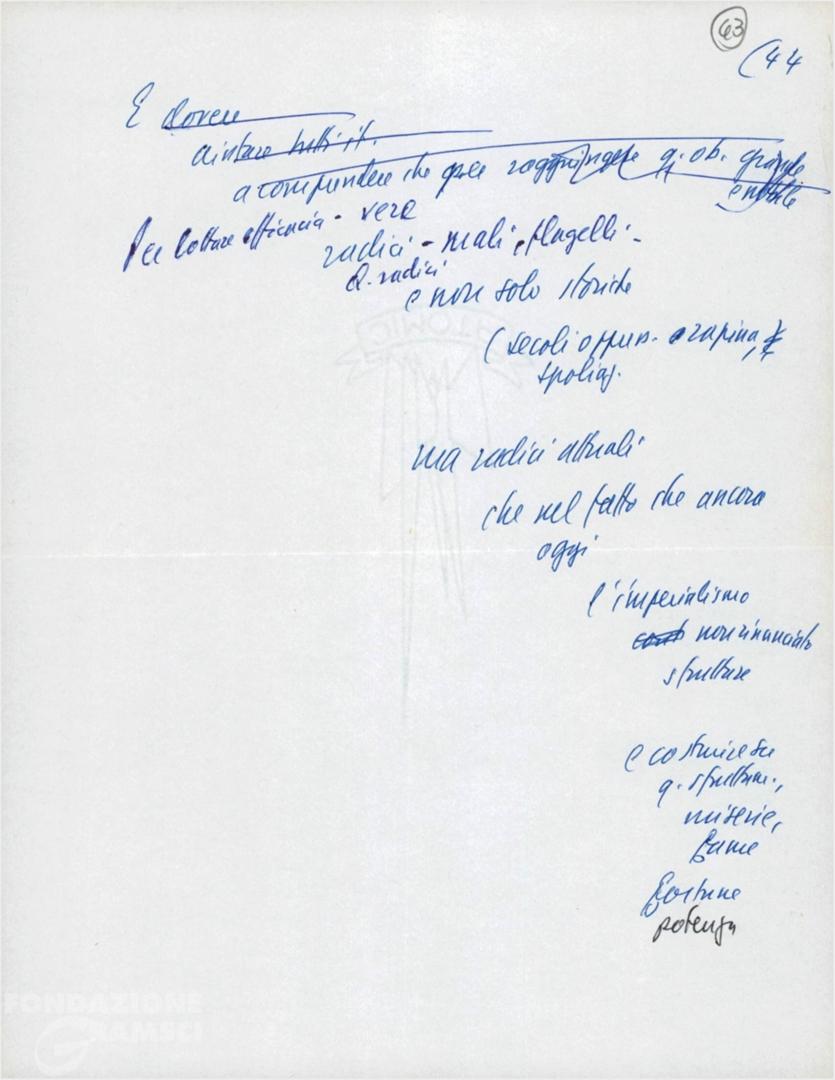 63
(44
E dovere
aiutare tutti it.
a comprendere che per raggiungere q. ob. grande
e nobile
Per lottare efficacia - vere
radici - mali, flagelli -
Q. radici
e non solo storiche
(secoli oppress. e rapina,
spoliaz.
ma radici attuali
che nel fatto che ancora
oggi
l'imperialismo
non rinunciato
strutture
e costruire su
q. struttur.,
miserie,
fame
fortune
potenza
ATOMIC
FONDAZIONE
GRAMSCI